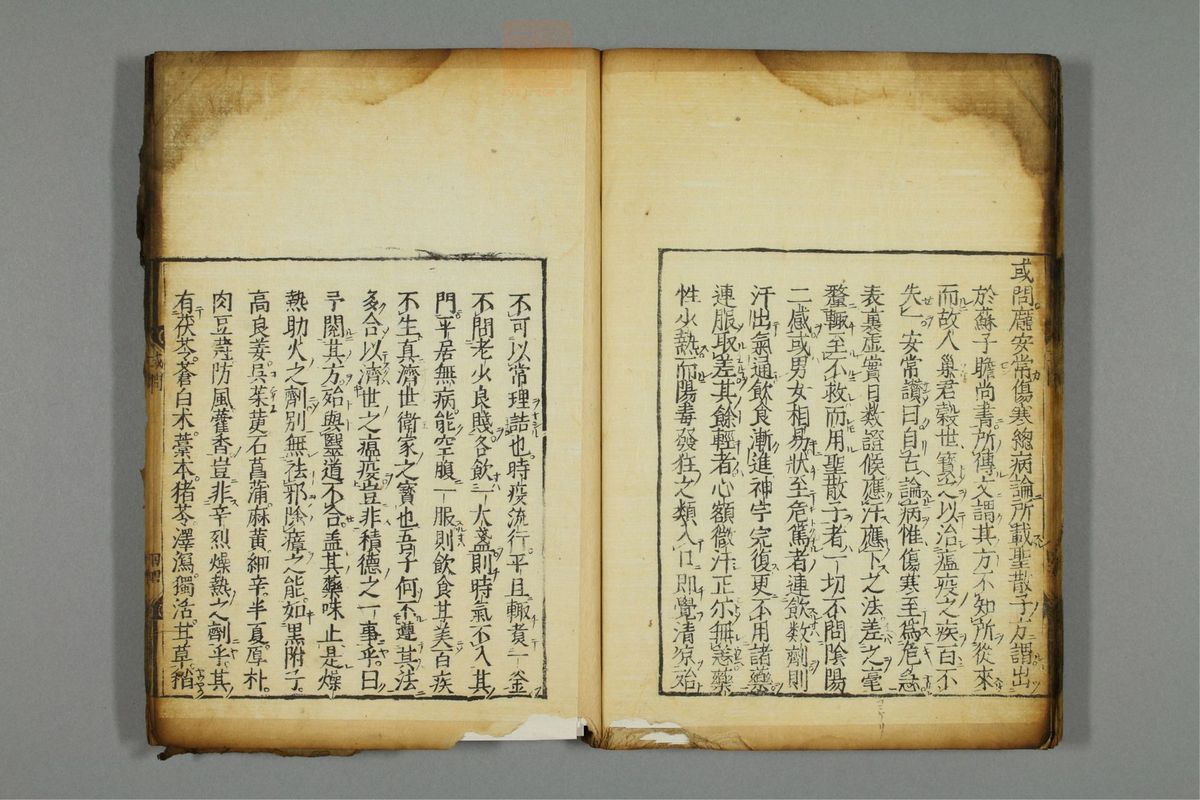 或問龐安常傷寒總病論所載聖散子方謂出
於蘇子瞻尚書所傳又謂其方不知所從來
而故人巢君穀世寶之以治瘟疫之疾百不
失一安常讚曰自古論病惟傷寒至爲危急
表裏虛實日數證候應汗應下之法差之毫
釐輒至不救而用聖散子者一切不問陰陽
二感或男女相易狀至危篤者連飲數劑則
汗出氣通飲食漸進神宇完復更不用諸藥
連服取差其餘輕者心額微汗正尓無恙藥
性少熱而陽毒發狂之類入口即覺清凉殆
不可以常理詰也時疫流行平旦輒煑一釜
不問老少良賤各飲一大盞則時氣不入其
門平居無病能空腹一服則飲食甘美百疾
不生真濟世衛家之寳也吾子何不遵其法
多合以濟世之瘟疫豈非積德之一事乎曰
予閱其方殆與醫道不合盖其藥味止是燥
熱助火之劑別無祛邪除瘴之能如黒附子
高良姜吳茱萸石菖蒲麻黄細辛半夏厚朴
肉豆蔲防風藿香豈非辛烈燥熱之劑乎其
有茯苓蒼白朮藁本猪苓澤瀉獨活甘草